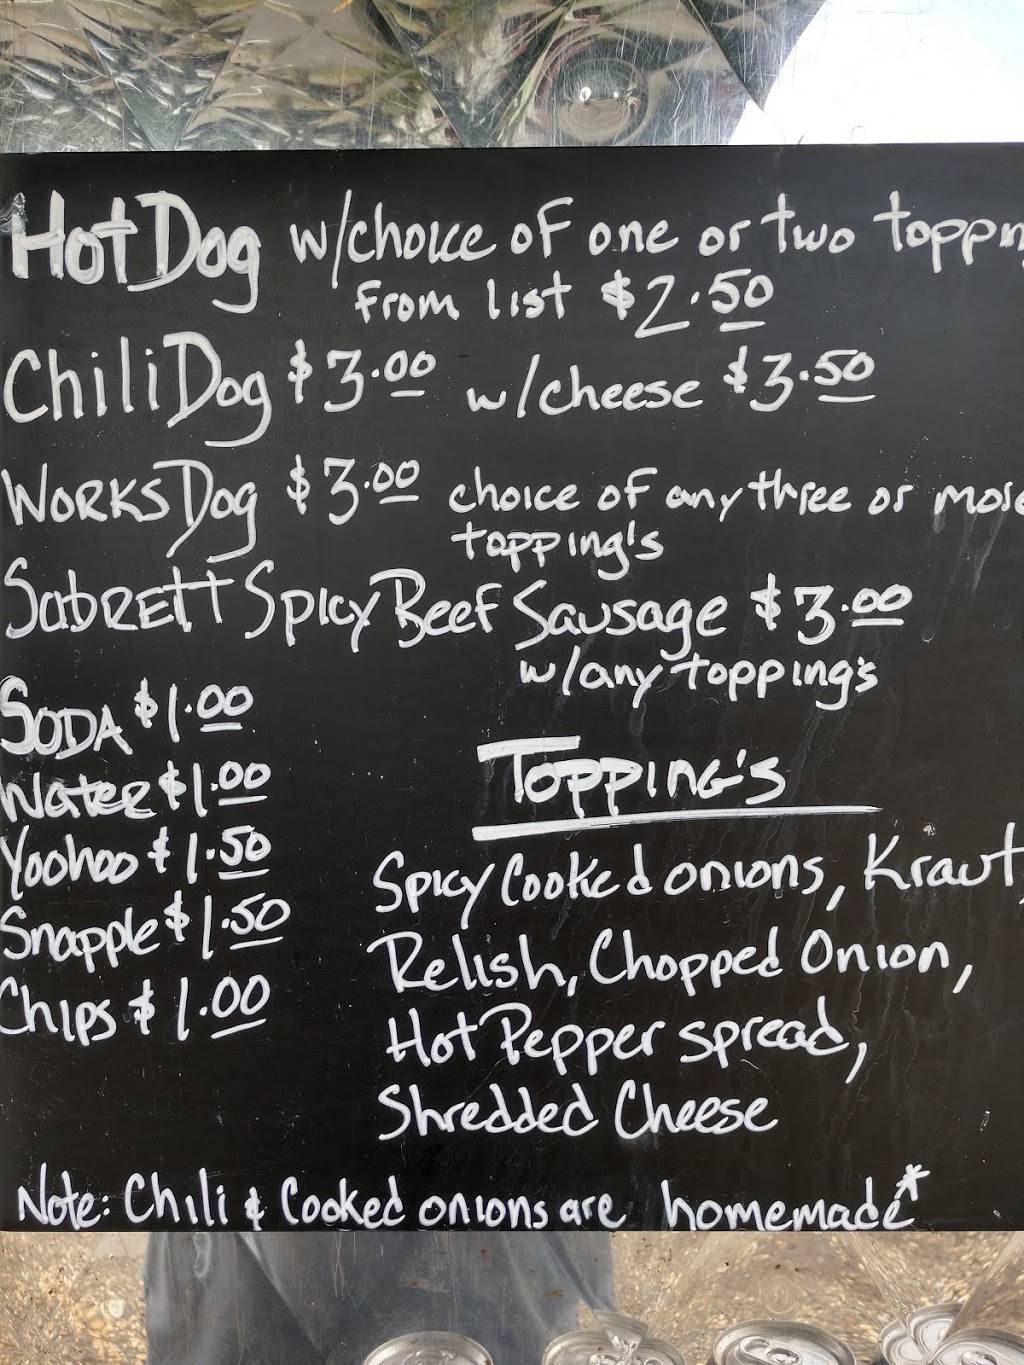 Hot Dog w/choice of one or two toppin
From list $2.50
Chili Dog $3.00 w/cheese $3.50
Works Dog $3.00 choice of any three or more
topping's
Sabrett Spicy Beef Sausage $3.00
w/any topping's
Soda $1.00
Water $1.00
Yoohoo $1.50
Snapple $1.50
Chips $1.00
Topping's
Spicy Cooked onions, Kraut,
Relish, Chopped Onion,
Hot Pepper spread,
Shredded Cheese
Note: Chili & Cooked onions are homemade*